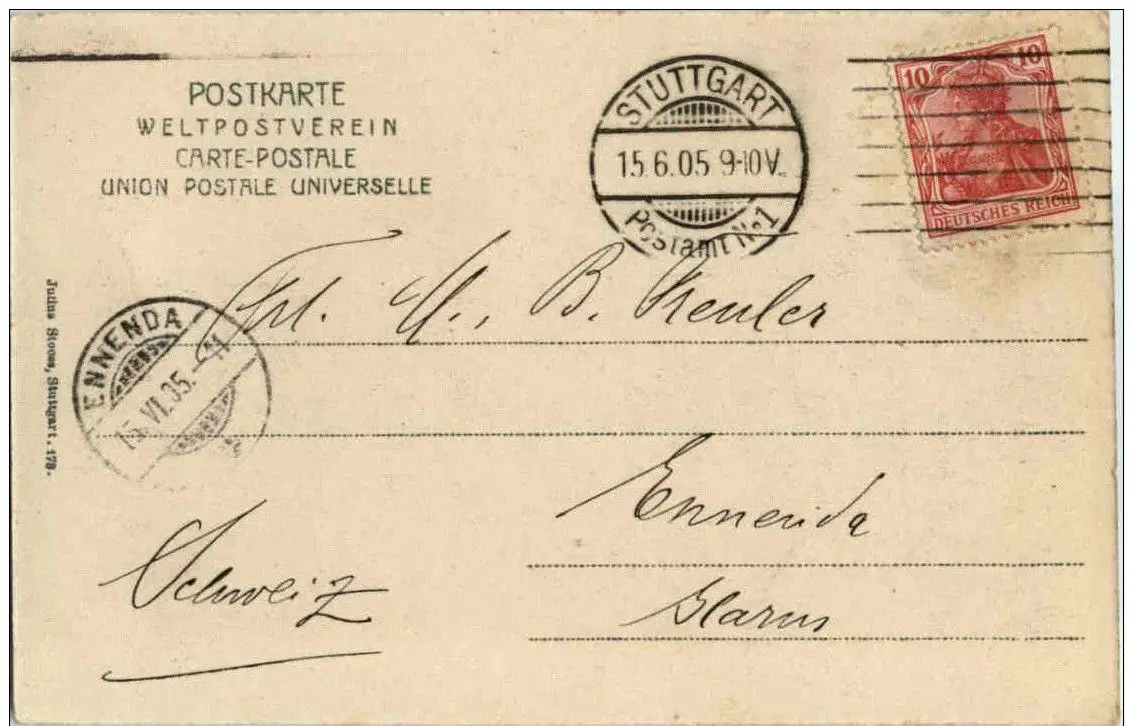 POSTKARTE
WELTPOSTVEREIN
CARTE-POSTALE
UNION POSTALE UNIVERSELLE
STUTTGART
15.6.05 9-10V.
Postamt No 1
10 10
DEUTSCHES REICH
Frl. B.
ENNENDA
15.VI.05.-11
Julius Stoss, Stuttgart. 178.
Ennenda
Schweiz
Glarus